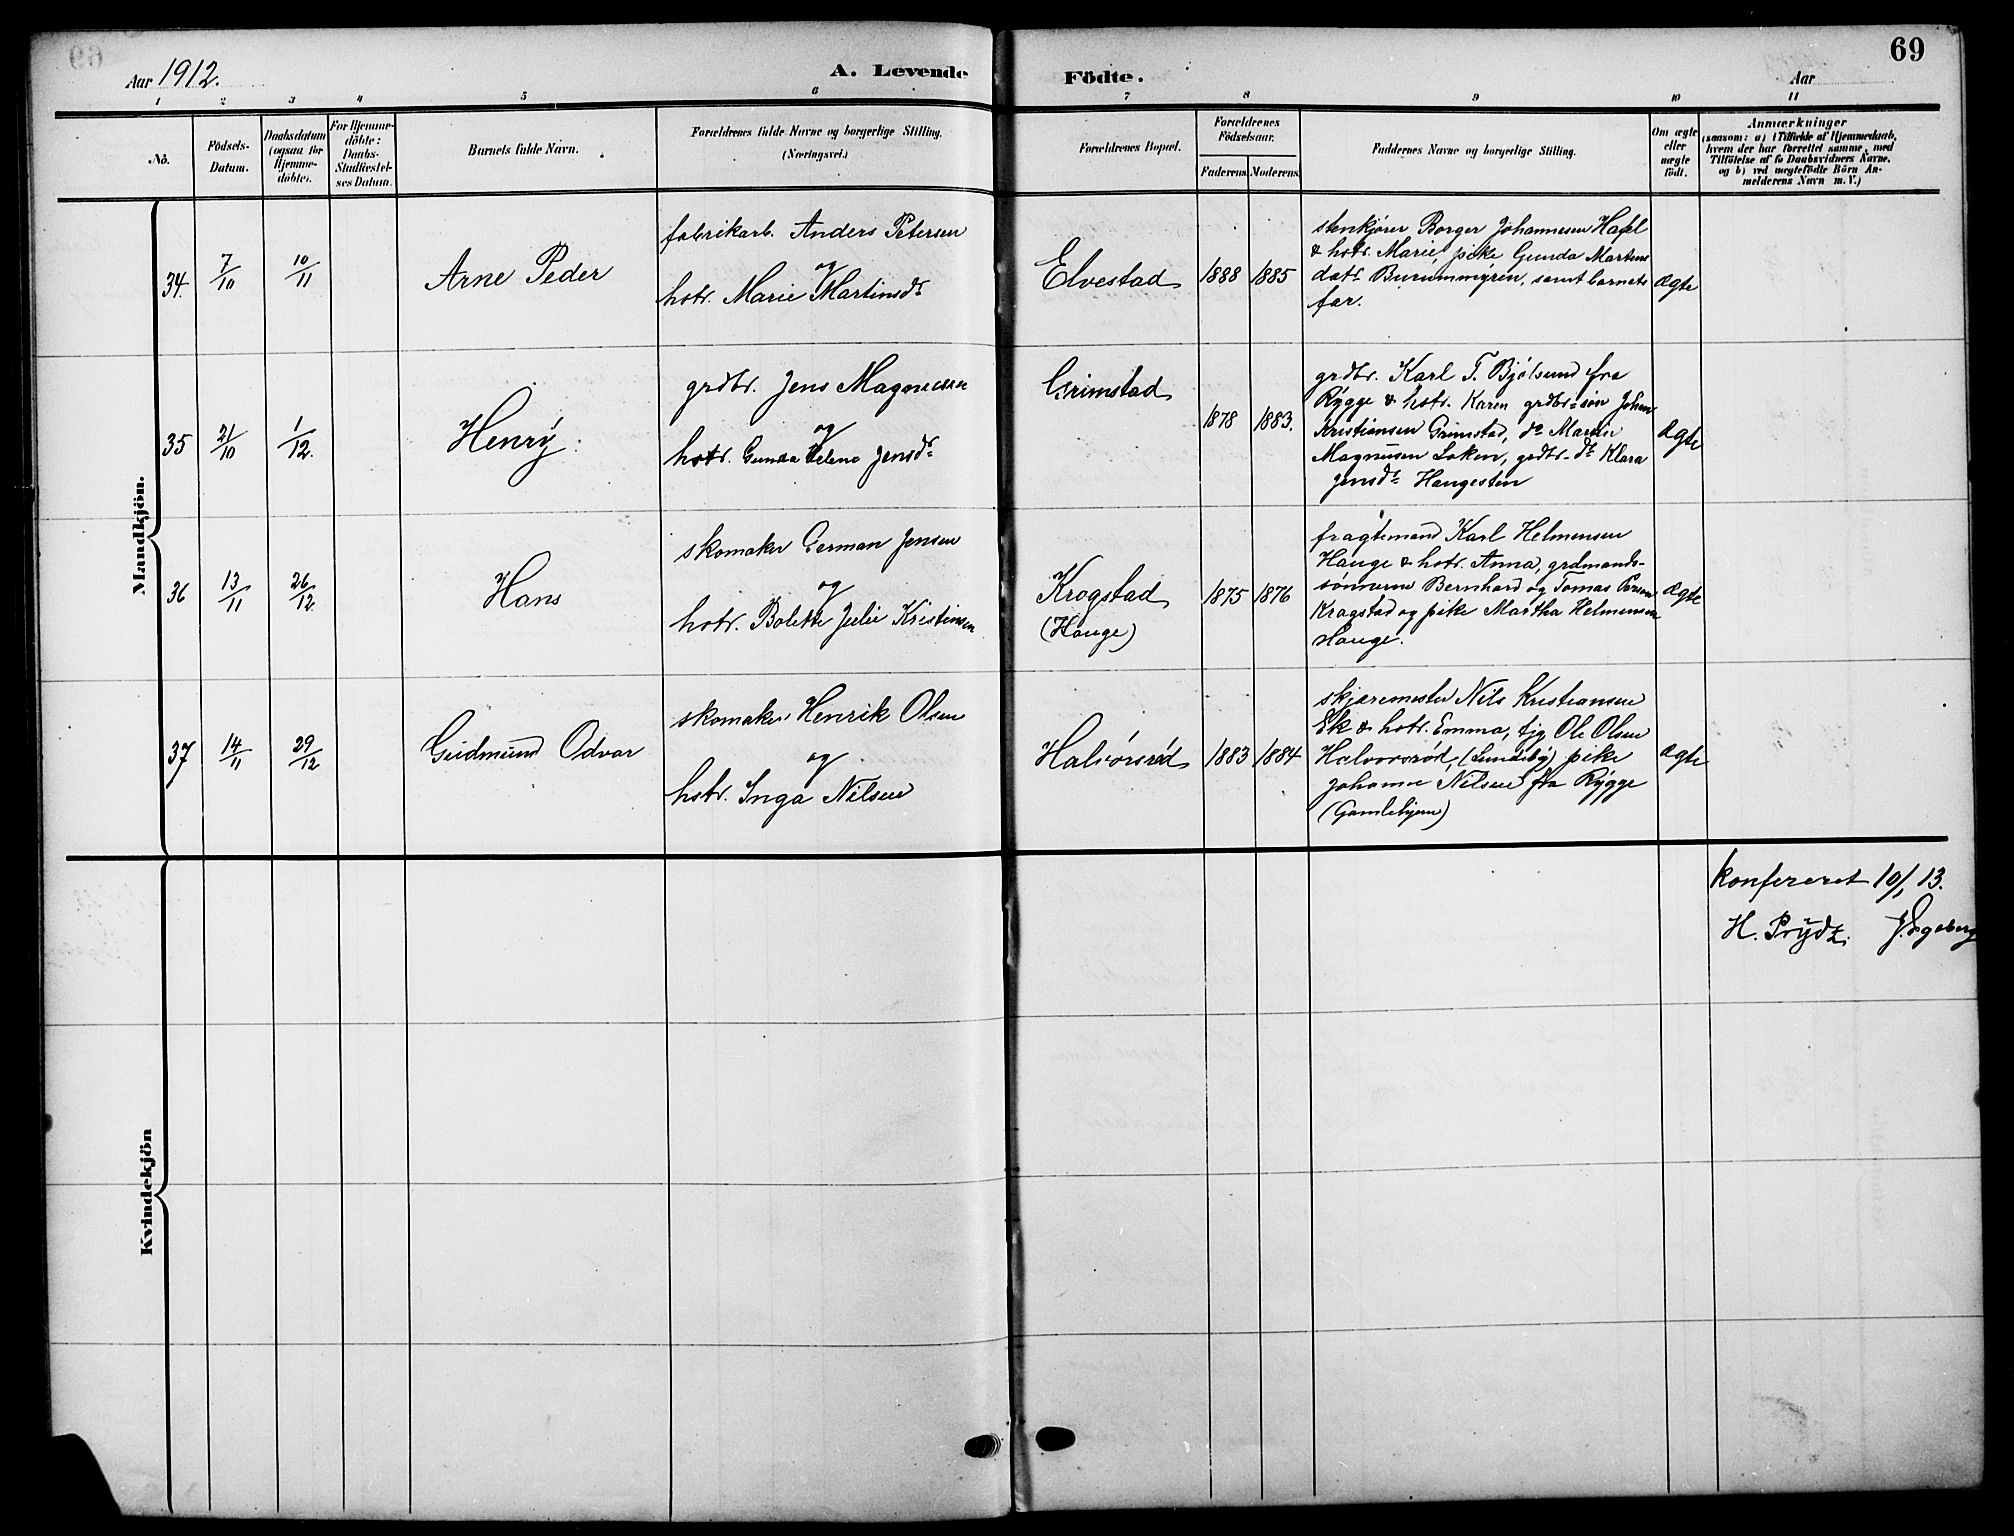 69
Aar 1912.
A. Levende Födte.
Aar
1 2 3 4 5 6 7 8 9 10 11
No.
Födsels-
Datum.
Daabsdatum
(ogsaa for
Hjemme-
döbte).
For Hjemme-
döbte:
Daabs-
Stadfæstel-
ses Datum.
Barnets fulde Navn.
Forældrenes fulde Navne og borgerlige Stilling.
(Næringsvei.)
Forældrenes Bopæl.
Forældrenes
Födselsaar.
Faderens Moderens
Faddernes Navne og borgerlige Stilling.
Om ægte
eller
uægte
födt.
Anmærkninger
(saasom: a) i Tilfælde af Hjemmedaab,
hvem der har forrettet samme, med
Tilföielse af to Daabsvidners Navne.
og b) ved uægtefödte Börn An-
melderens Navn m. V.)
Mandkjön.
34.
7/10
10/11
Arne Peder
fabrikarb. Anders Petersen
og
hstr. Marie Martinsdr
Elvestad
1888 1885
stenkjører Borger Johannesen Hafsl
& hstr. Marie, pike Gunda Martins
datr. samt barnets
far.
ægte
35
21/10
1/12.
Henrÿ
grdbr. Jens Magnussen
og
hstr. Gunda Helene Jensdr
Grimstad
1878 1883.
grdbr. Karl T. Bjølsund fra
Rÿgge & hstr. Karen grdbr-søn Johan
Kristiansen Grimstad, do Martin
Magnusen Løken, grdbr-dr Klara
Jensdr Haugesten
ægte
36
13/11
26/12.
Hans
skomaker German Jensen
og
hstr. Bolette Julie Kristensen
Krogstad
(Hauge)
1875 1876
fragtemand Karl Helmensen
Hauge & hstr. Anna, grdmands-
sønnerne Bernhard og Tomas
Krogstad og pike Martha Helmensen
Hauge.
ægte
37
14/11
29/12
Gudmund Odvar
skomaker Henrik Olsen
og
hstr. Inga Nilsen
Halvorsrød
1883 1884
skjæremester Nils Kristiansen
Ek & hstr. Emma, tjg. Ole Olsen
Halvorsrød, (Lundebÿ) pike
Johanne Nilsen fra Rÿgge
(Gamlehjem)
ægte
Kvindekjön
konfereret 10/1 13.
H. Prÿdz.